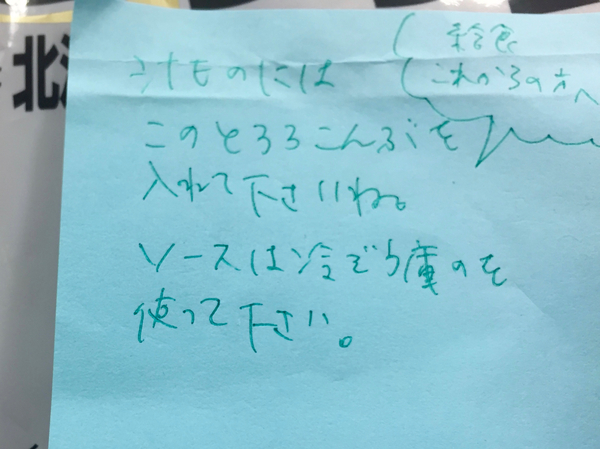 北海
給食
これからの方へ
汁ものには
このとろろこんぶを
入れて下さいね。
ソースは冷ぞう庫のを
使って下さい。